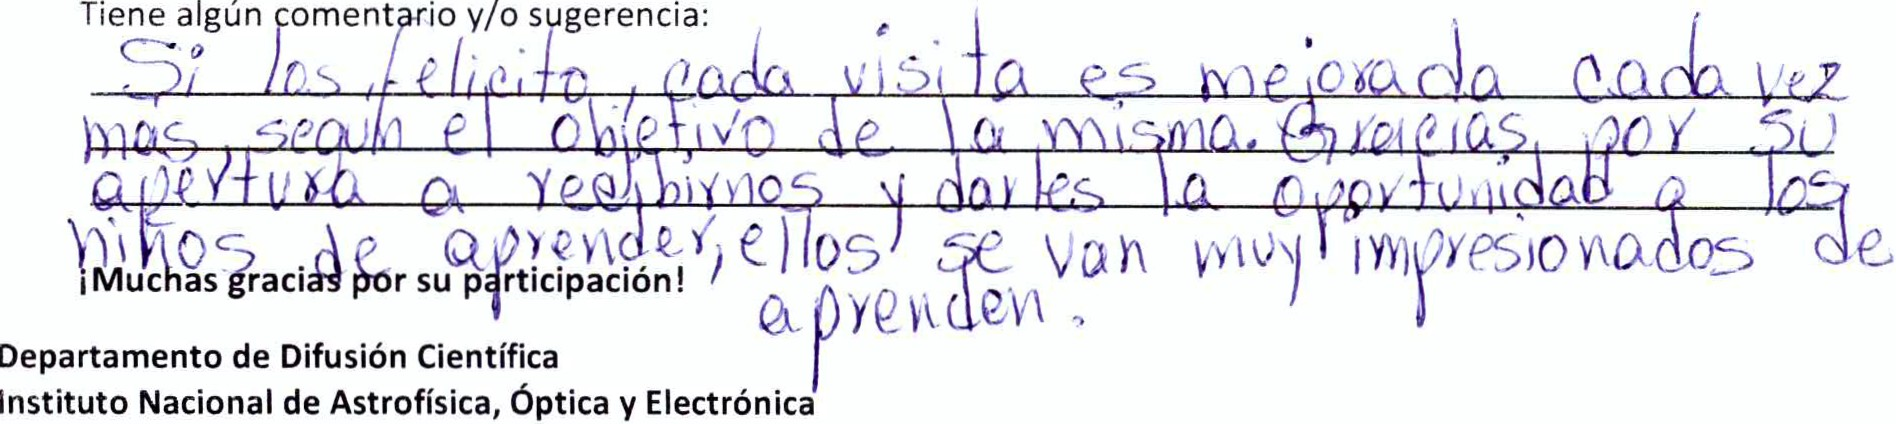 Tiene algún comentario y/o sugerencia:
Si los felicito, cada visita es mejorada cada vez
mas, segun el objetivo de la misma. Gracias, por su
apertura a recibirnos y darles la oportunidad a los
niños de aprender, ellos se van muy impresionados de
¡Muchas gracias por su participación!
aprenden.
Departamento de Difusión Científica
Instituto Nacional de Astrofísica, Óptica y Electrónica